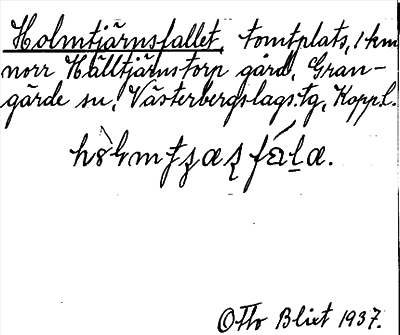 Holmtjärnsfallet, tomtplats, 1 km
norr Hälltjärnstorp gård, Gran-
gärde sn, Västerbergslags tg, Koppl.
Otto Blixt 1937.